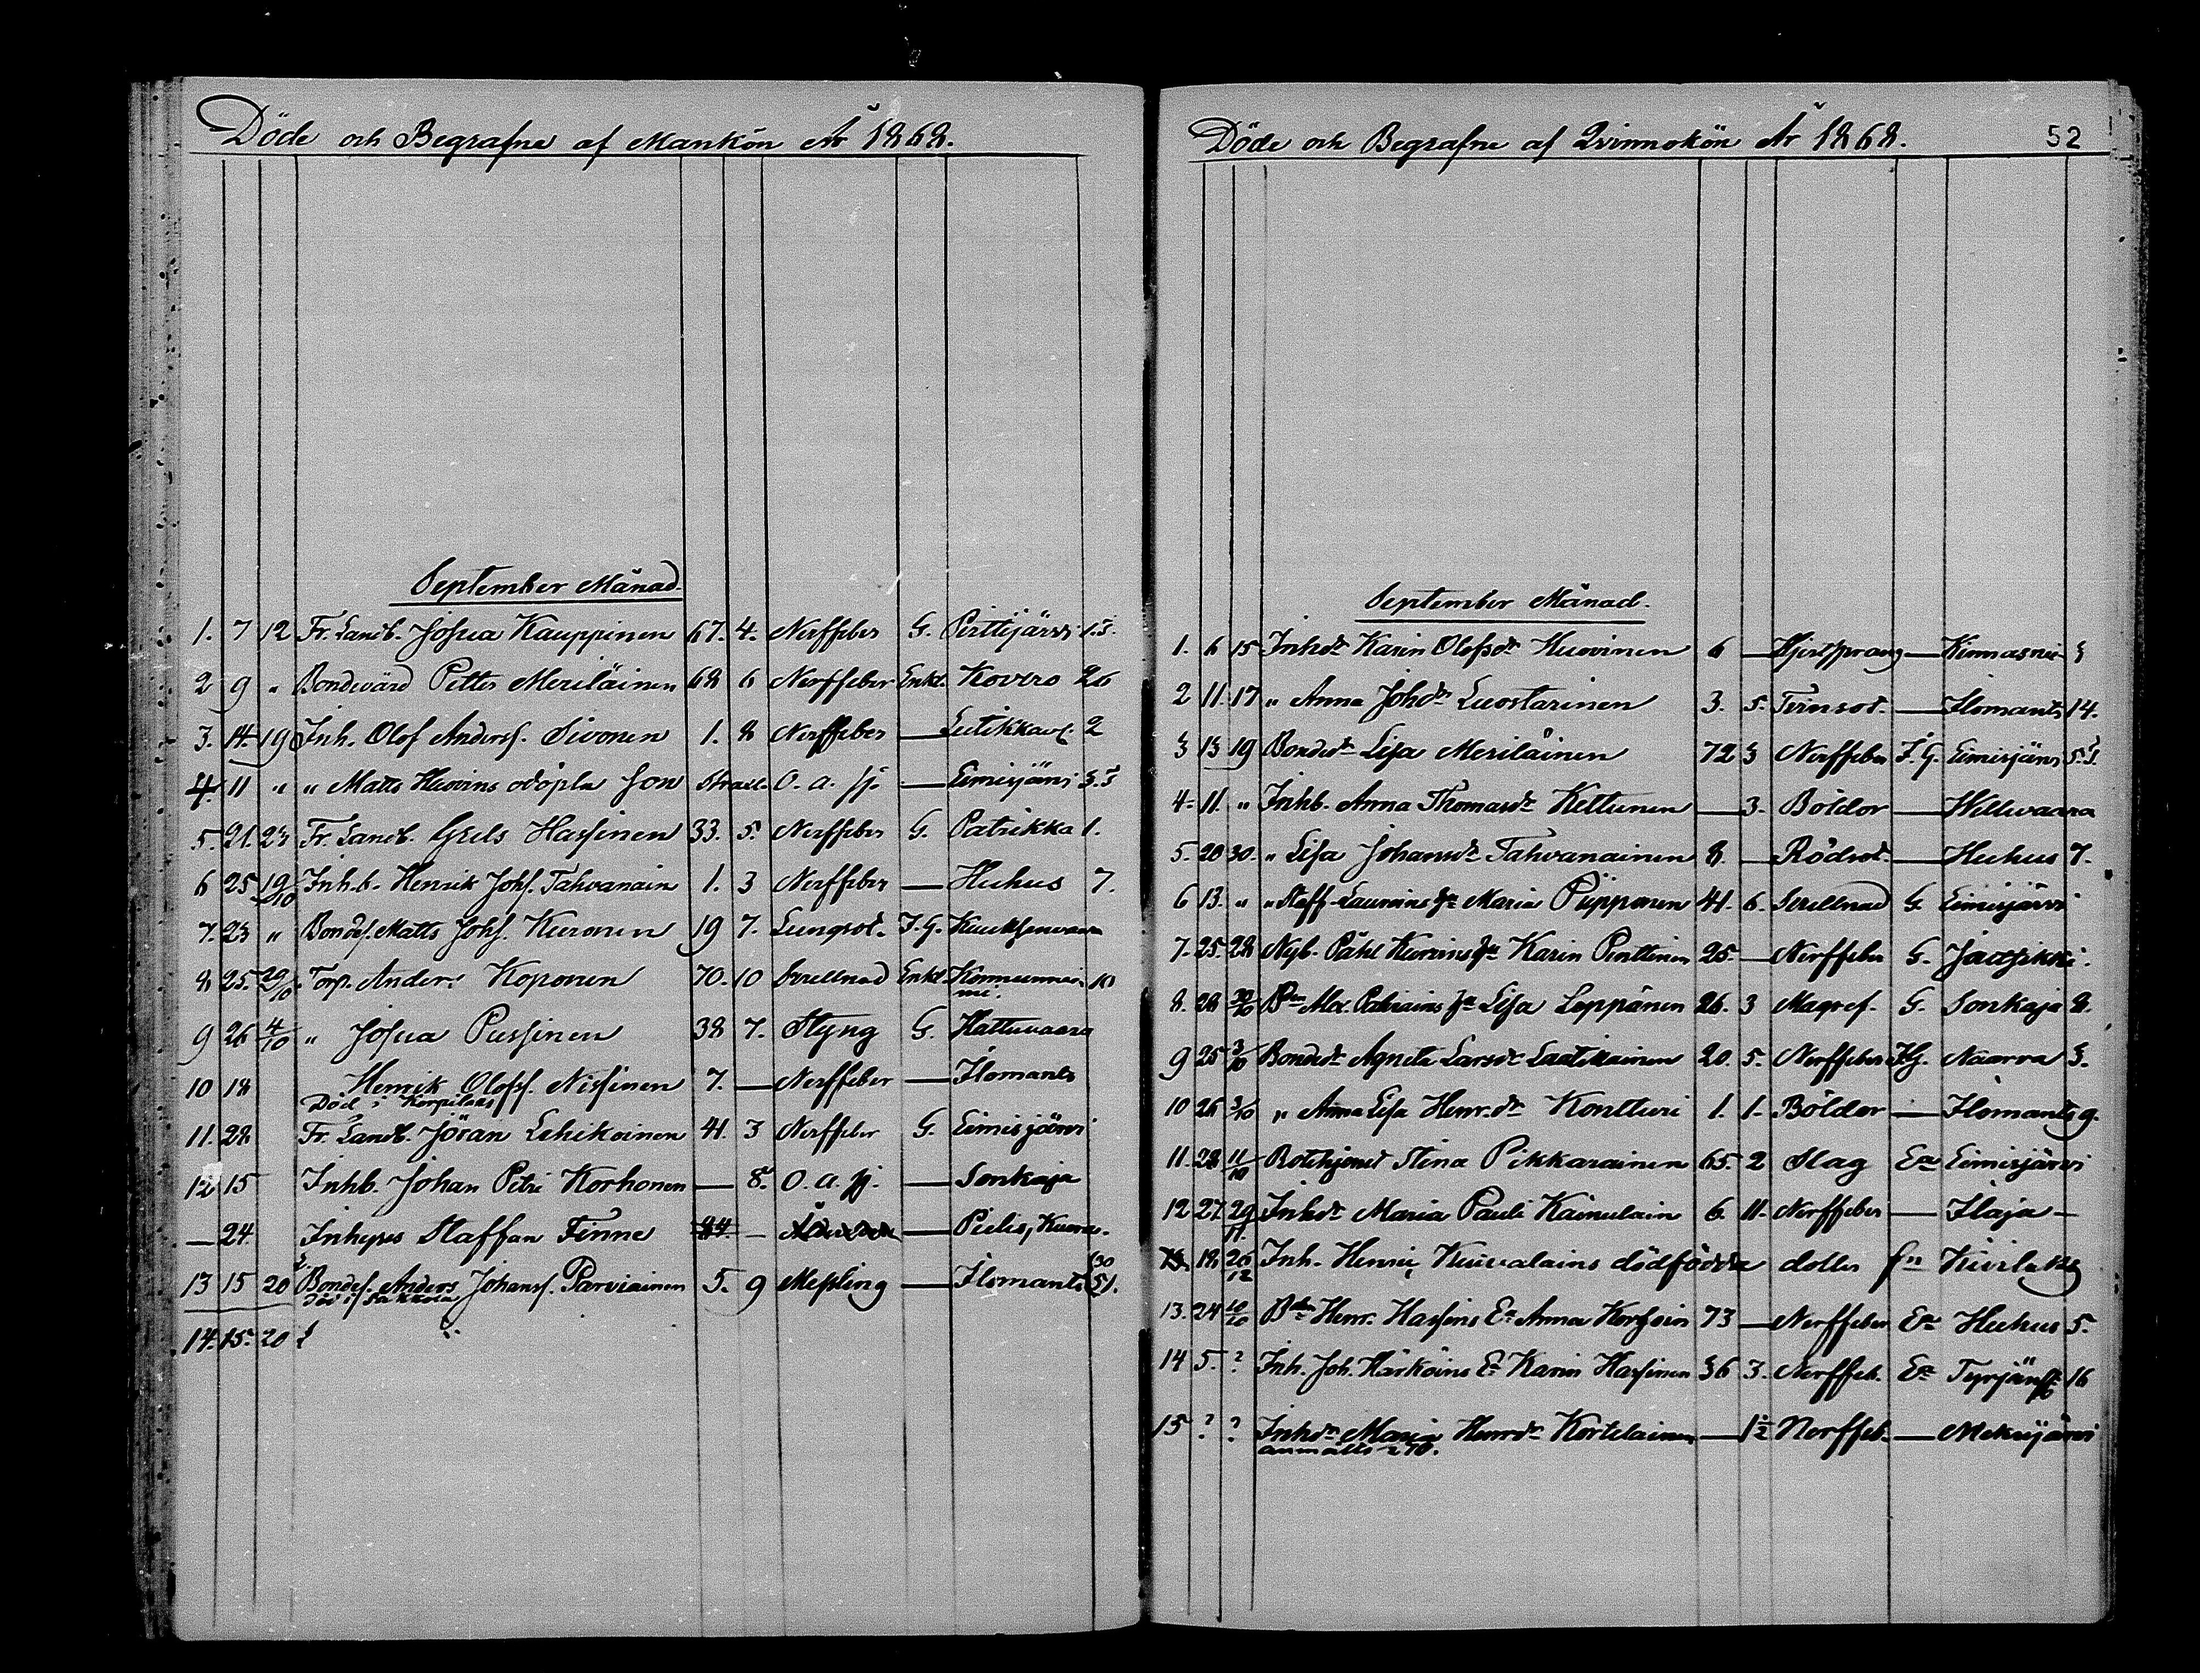 Döde och Begrafne af Mankön År 1868.
September Månad.
1. 7 12 Fr. Landb. Josua Kauppinen 67. 4. Nerffeber G. Perttijärvi 1.
2 9 " Bondevärd Petter Meriläinen 68 6 Nerffeber Enkl. Kovero 26
3. 14. 19 Inh. Olof Anderss. Sivonen 1. 8 Nerffeber — 2
4. 11 " " Matts Huovins odöpta son O. a. sj. — Eimisjärvi
5. 21. 23 Fr. Landb. Grels Hassinen 33. 5. Nerffeber G. Patrikka 1.
6 25 19/10 Inhb. Henrik Johs. Tahvanain 1. 3 Nerffeber — Huhus 7.
7. 23 " Bondes. Matts Johs. Kuronen 19 7. Lungsot. I. G. Kuuksenvaara
8 25. Torp. Anders Koponen 70. 10 Enkl. 10
9 26 4/10 " Josua Pussinen 38 7. Styng G. Hattuvaara
10 18 Henrik Olofss. Nissinen 7. — Nerffeber — Ilomants
Död i Korpilaks
11. 28 Fr. Landb. Jöran Lehikoinen 41. 3 Nerffeber G. Eimisjärvi
12 15 Inhb. Johan Petri Korhonen — 8. O. a. sj. — Sonkaja
— 24. Inhyses Staffan Finne 84 — — Pielis,
13 15 20 Bondes. Anders Johanss. Parviainen 5. 9 Messling — Ilomants 51.
Död i Sakkola
14. 15. 20
Döde och Begrafne af Qvinnokön År 1868. 52
September Månad.
1. 6 15 Inhdr Karin Olofsdr Huovinen 6 — Hjertsprång — Kinnasniemi 3
2 11. 17 " Anna Johdr Luostarinen 3. 5. Tvinsot. — Ilomants 14.
3 13 19 Bondedr Lisa Meriläinen 72 3 Nerffeber I. G. Eimisjärvi 5.
4. 11. " Inhb. Anna Thomasdr Kettunen — 3. Bölder — Willuvaara
5. 20 30. " Lisa Johansdr Tahvanainen 8. — Rödsot — Huhus 7.
6 13. " " Staff. Laurins Ha Maria Piipponen 41. 6. G. Eimisjärvi
7. 25. 28 Nyb. Påhl Kurvins Hu Karin Penttinen 25. — Nerffeber G.
8. 28 30/10 Bdn Alex. Ha Lisa Leppänen 26. 3 Magref. G. Sonkaja 2.
9 25 3/10 Bondedr Agneta Larsdr Laatikainen 20. 5. Nerffeber I.G. Naarva 3.
10 26 3/10 " Anna Lisa Henr.dr Kontturi 1. 1. Bölder — Ilomants 9.
11. 28 11/10 Rotehjonet Stina Pikkarainen 65. 2 Slag Ea Eimisjärvi
12 27. 29/11. Inhdr Maria Pauli Kainulain 6. 11. Nerffeber — Ilaja —
13. 18. 26/12 Inh. Henric Kuivalains dödfödda dotter fr Kuolaks
13. 24 10/10 Bdn Henr. Hassins Ea Anna 73 — Nerffeber Ea Huhus 5.
14 5. ? Inh. Joh. Härköins Ea Karin Hassinen 36 3. Nerffeb. Ea 16
15 ? ? Inhdr Maria Henrdr Kortelainen — 1½ Nerffeb. — Mekrijärvi
anmälts